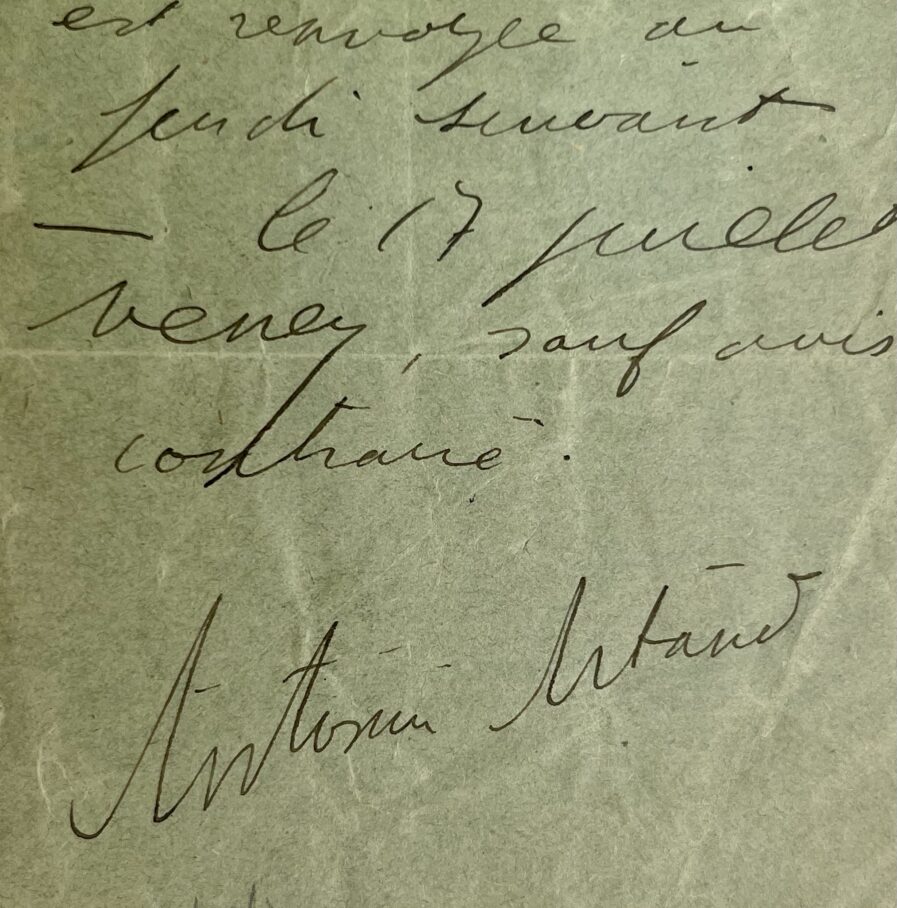 est renvoyée au
jeudi suivant
— le 17 juillet
Venez, sauf avis
contraire.
Antonin Artaud